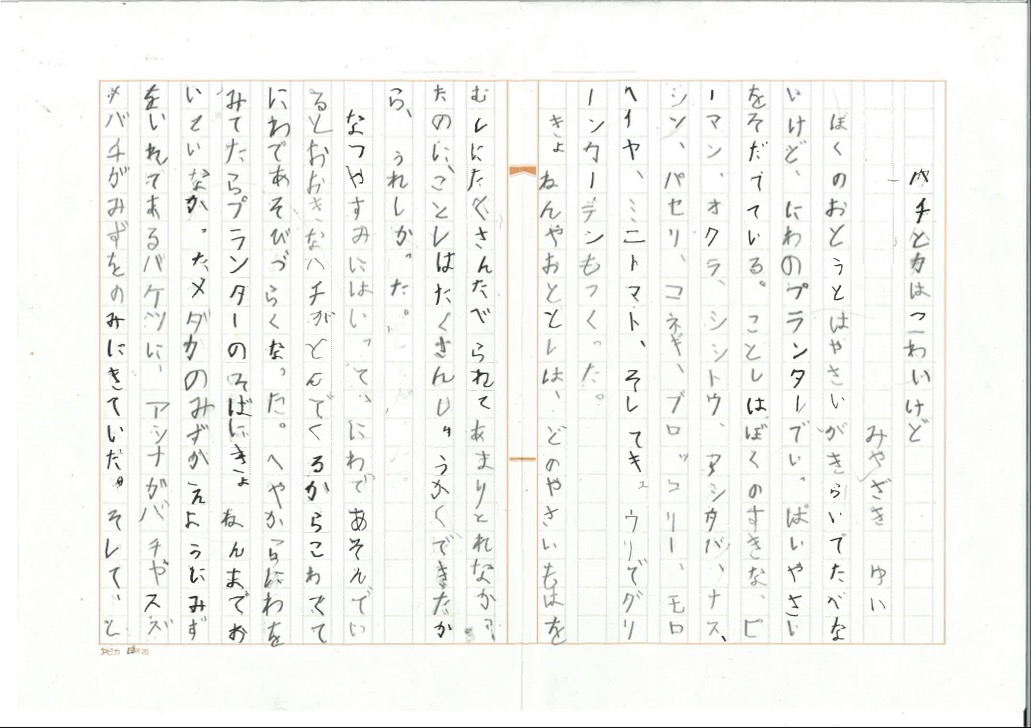 ハチとカはこわいけど
みやざき ゆい
ぼくのおとうとはやさいがきらいでたべな
いけど、にわのプランターでいっぱいやさい
をそだてている。ことしはぼくのすきな、ピ
ーマン、オクラ、シシトウ、アシタバ、ナス、
シン、パセリ、コネギ、ブロッコリー、モロ
ヘイヤ、ミニトマト、そしてキュウリでグリ
ーンカーテンもつくった。
きょねんやおととしは、どのやさいもはを
むしにたくさんたべられてあまりとれなかっ
たのに、ことしはたくさんしゅうかくできたか
ら、うれしかった。
なつやすみにはいって、にわであそんでい
るとおおきなハチがとんでくるからこわくて
にわであそびづらくなった。へやからにわを
みてたらプランターのそばにきょねんまでお
いていなかったメダカのみずがえようにみず
をいれてあるバケツに、アシナガバチやスズ
メバチがみずをのみにきていた。そして、と